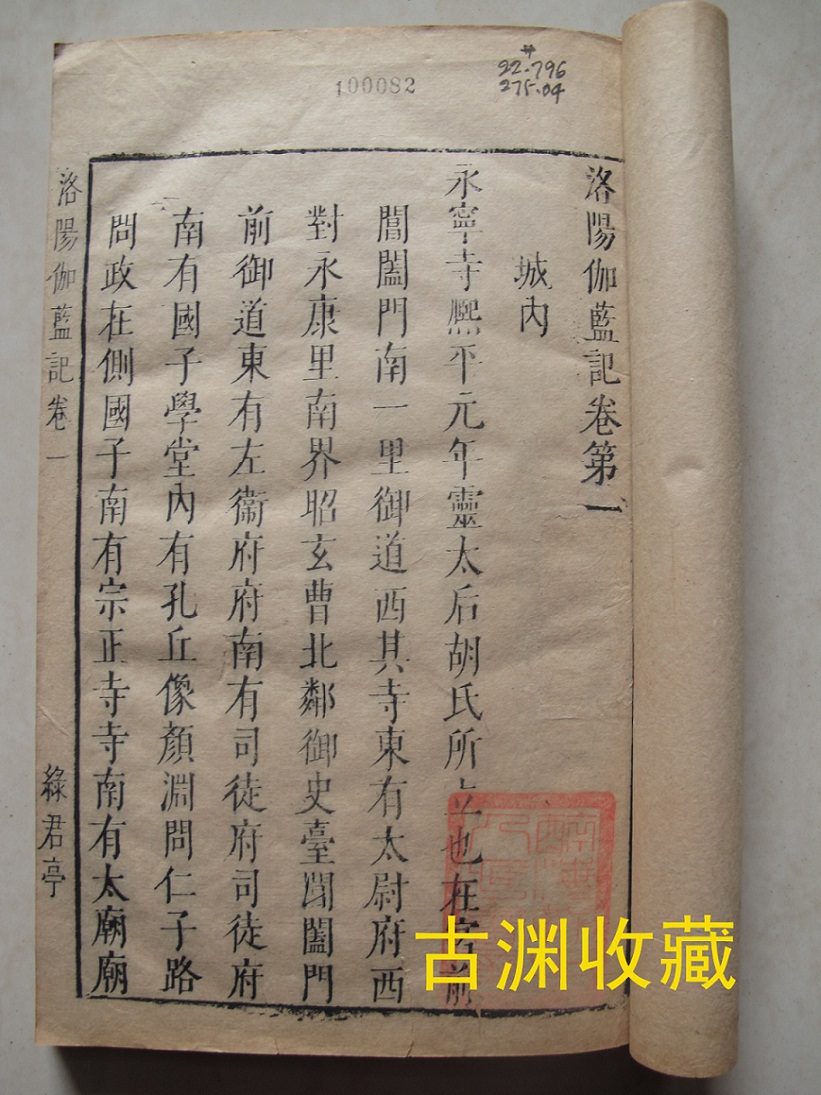 100082
22.796
275.04
洛陽伽藍記卷第一
城內
永寧寺熙平元年靈太后胡氏所立也在宮前
閶闔門南一里御道西其寺東有太尉府西
對永康里南界昭玄曹北鄰御史臺閶闔門
前御道東有左衛府府南有司徒府司徒府
南有國子學堂內有孔丘像顏淵問仁子路
問政在側國子南有宗正寺寺南有太廟廟
洛陽伽藍記卷一
綠君亭
古渊收藏